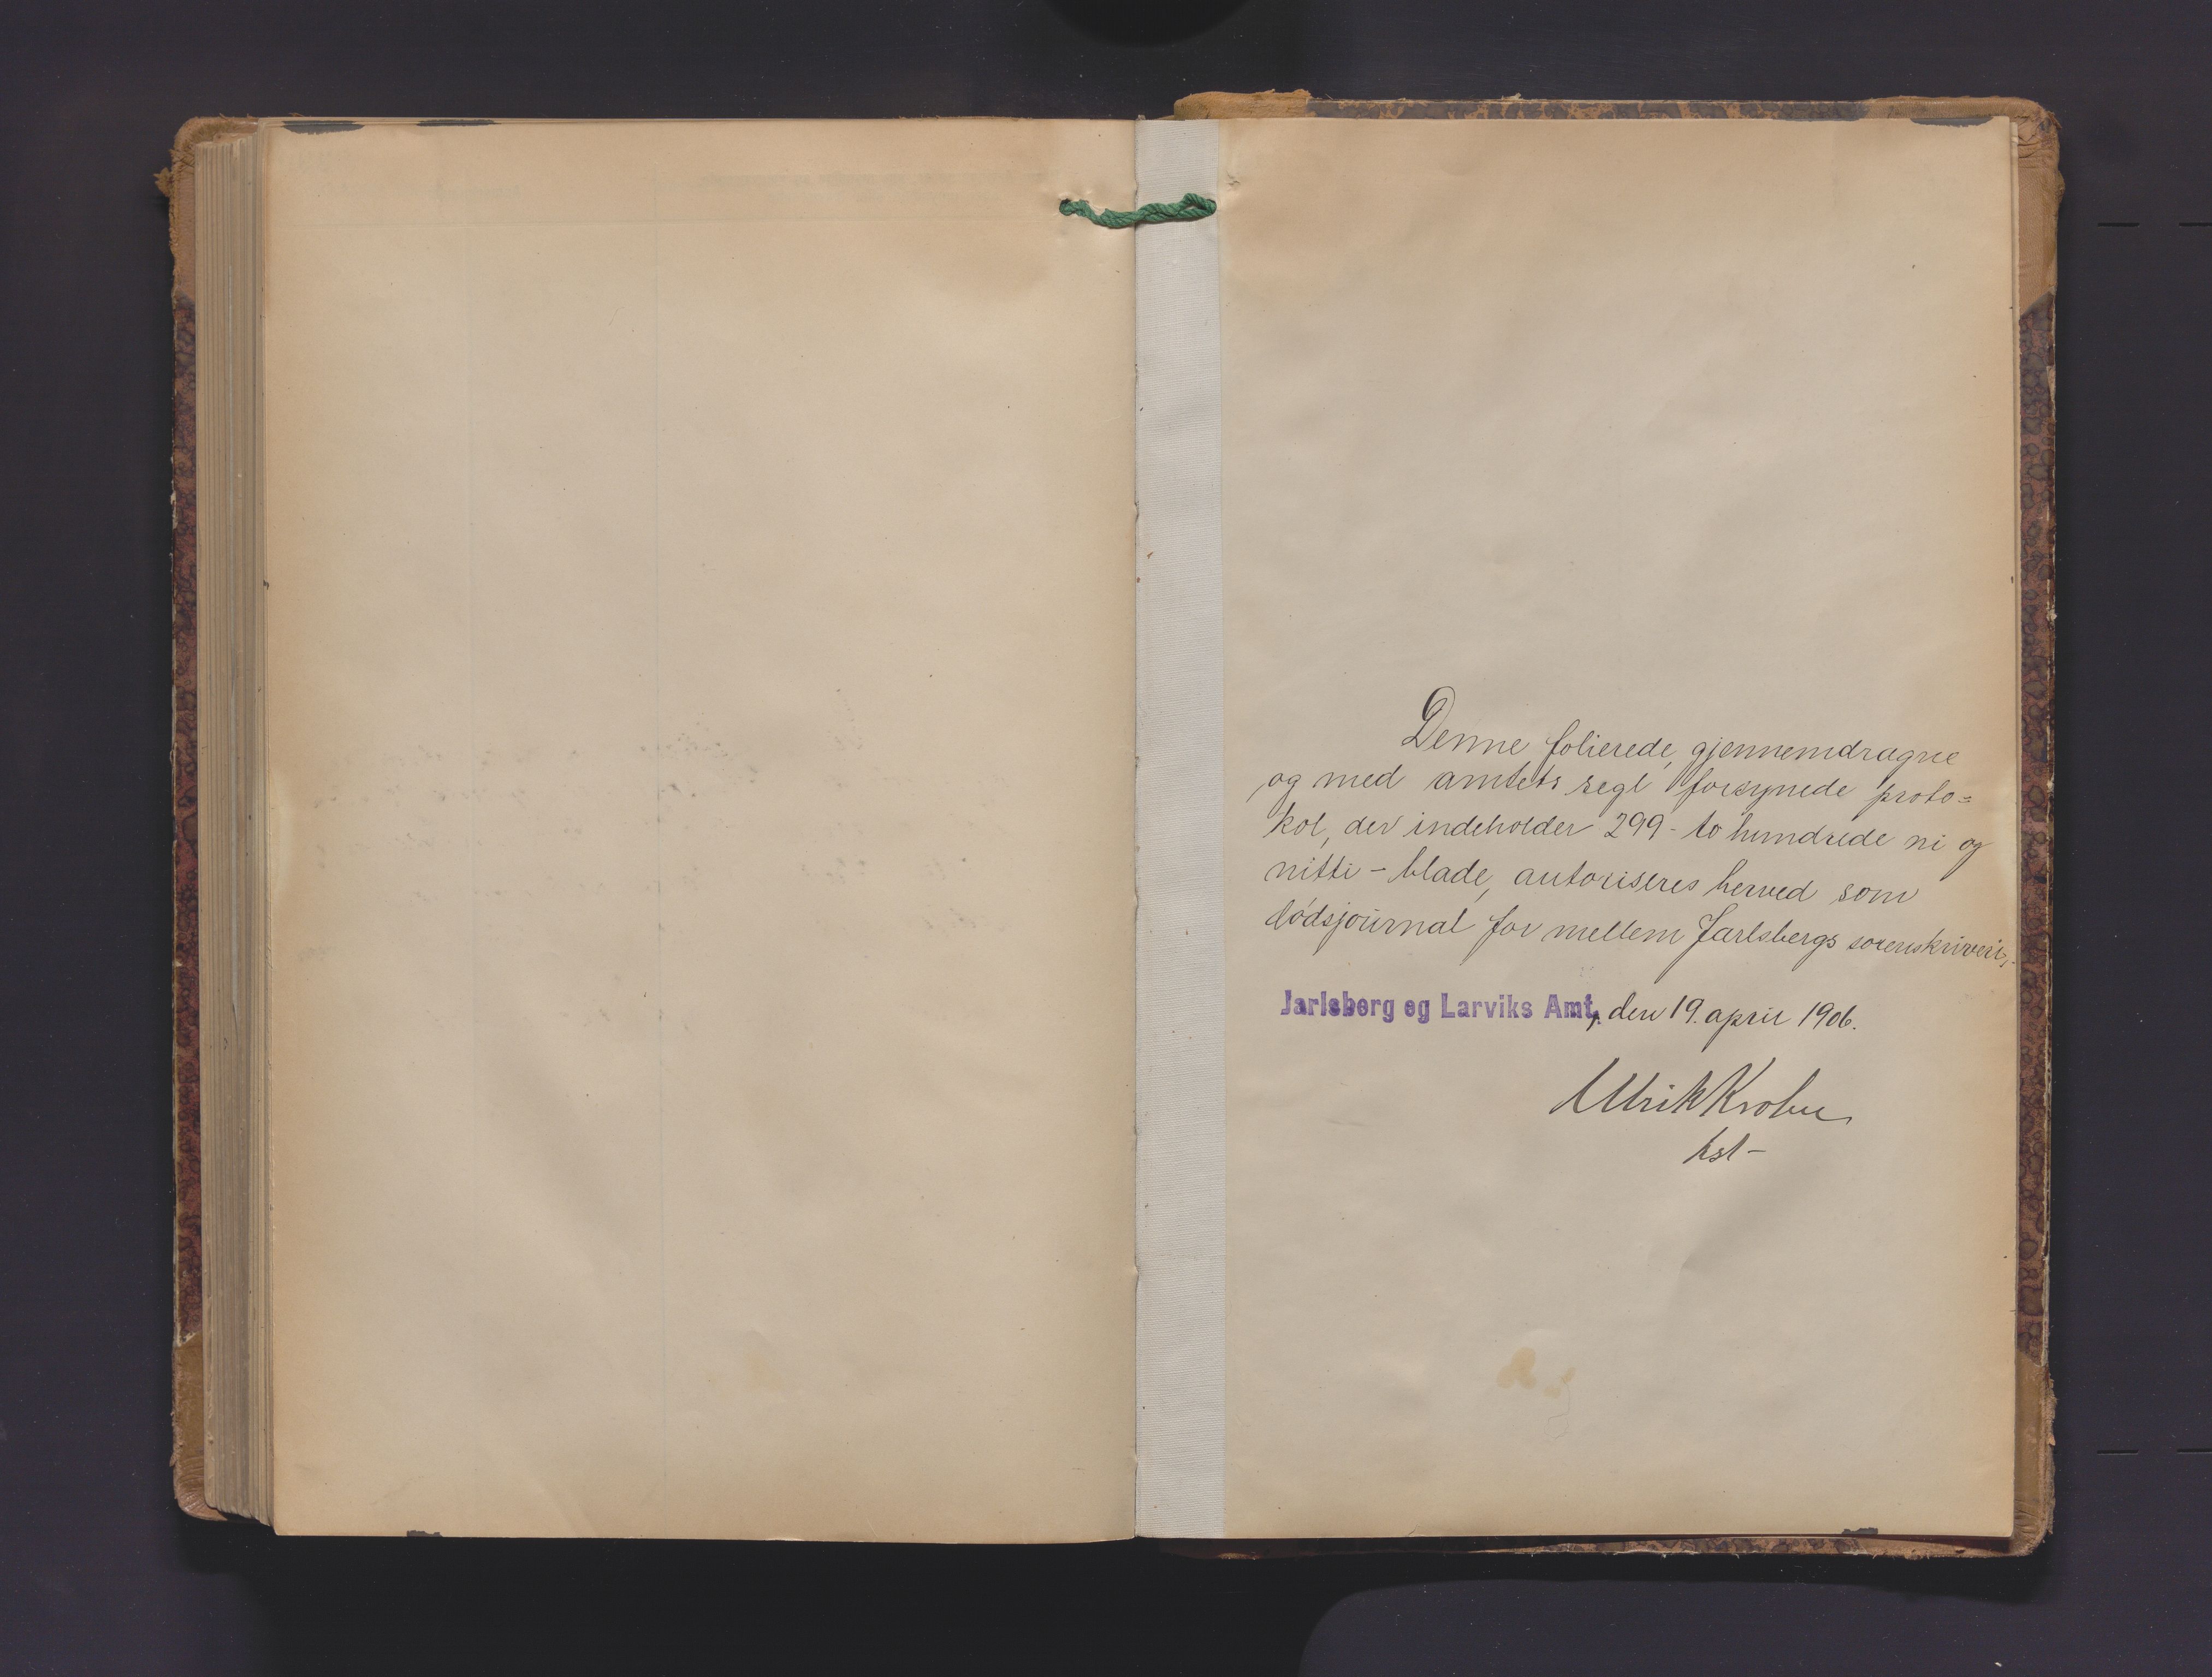 Denne folierede, gjennemdragne
og med amtets segl forsynede proto=
kol, der indeholder 299 - to hundrede ni og
nitti - blade, autoriseres herved som
dødsjournal for mellem Jarlsbergs sorenskriveri,
Jarlsberg og Larviks Amt, den 19. april 1906.
Ulrik Krohn
kst-